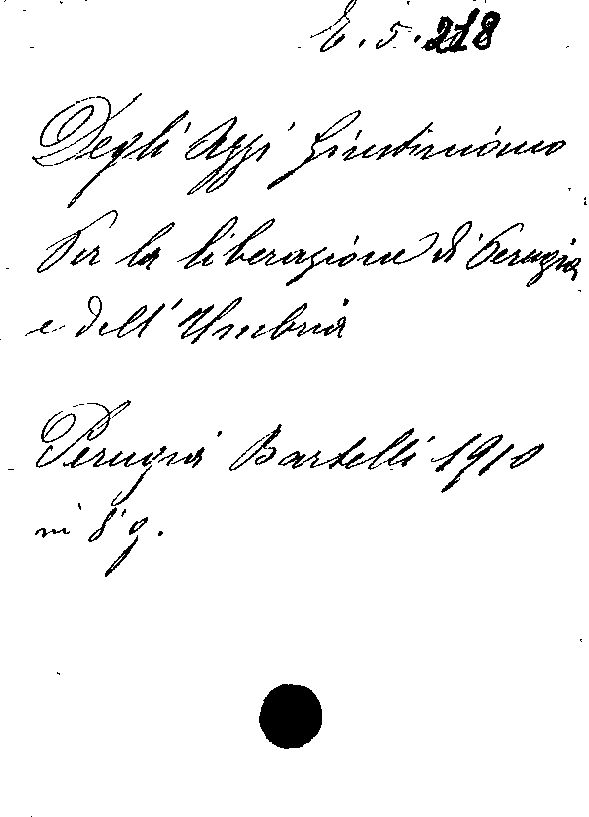 E. 5. 218
Degli Azzi Giustiniano
Per la liberazione di Perugia
e dell' Umbria
Perugia Bartelli 1910
in 8° g.